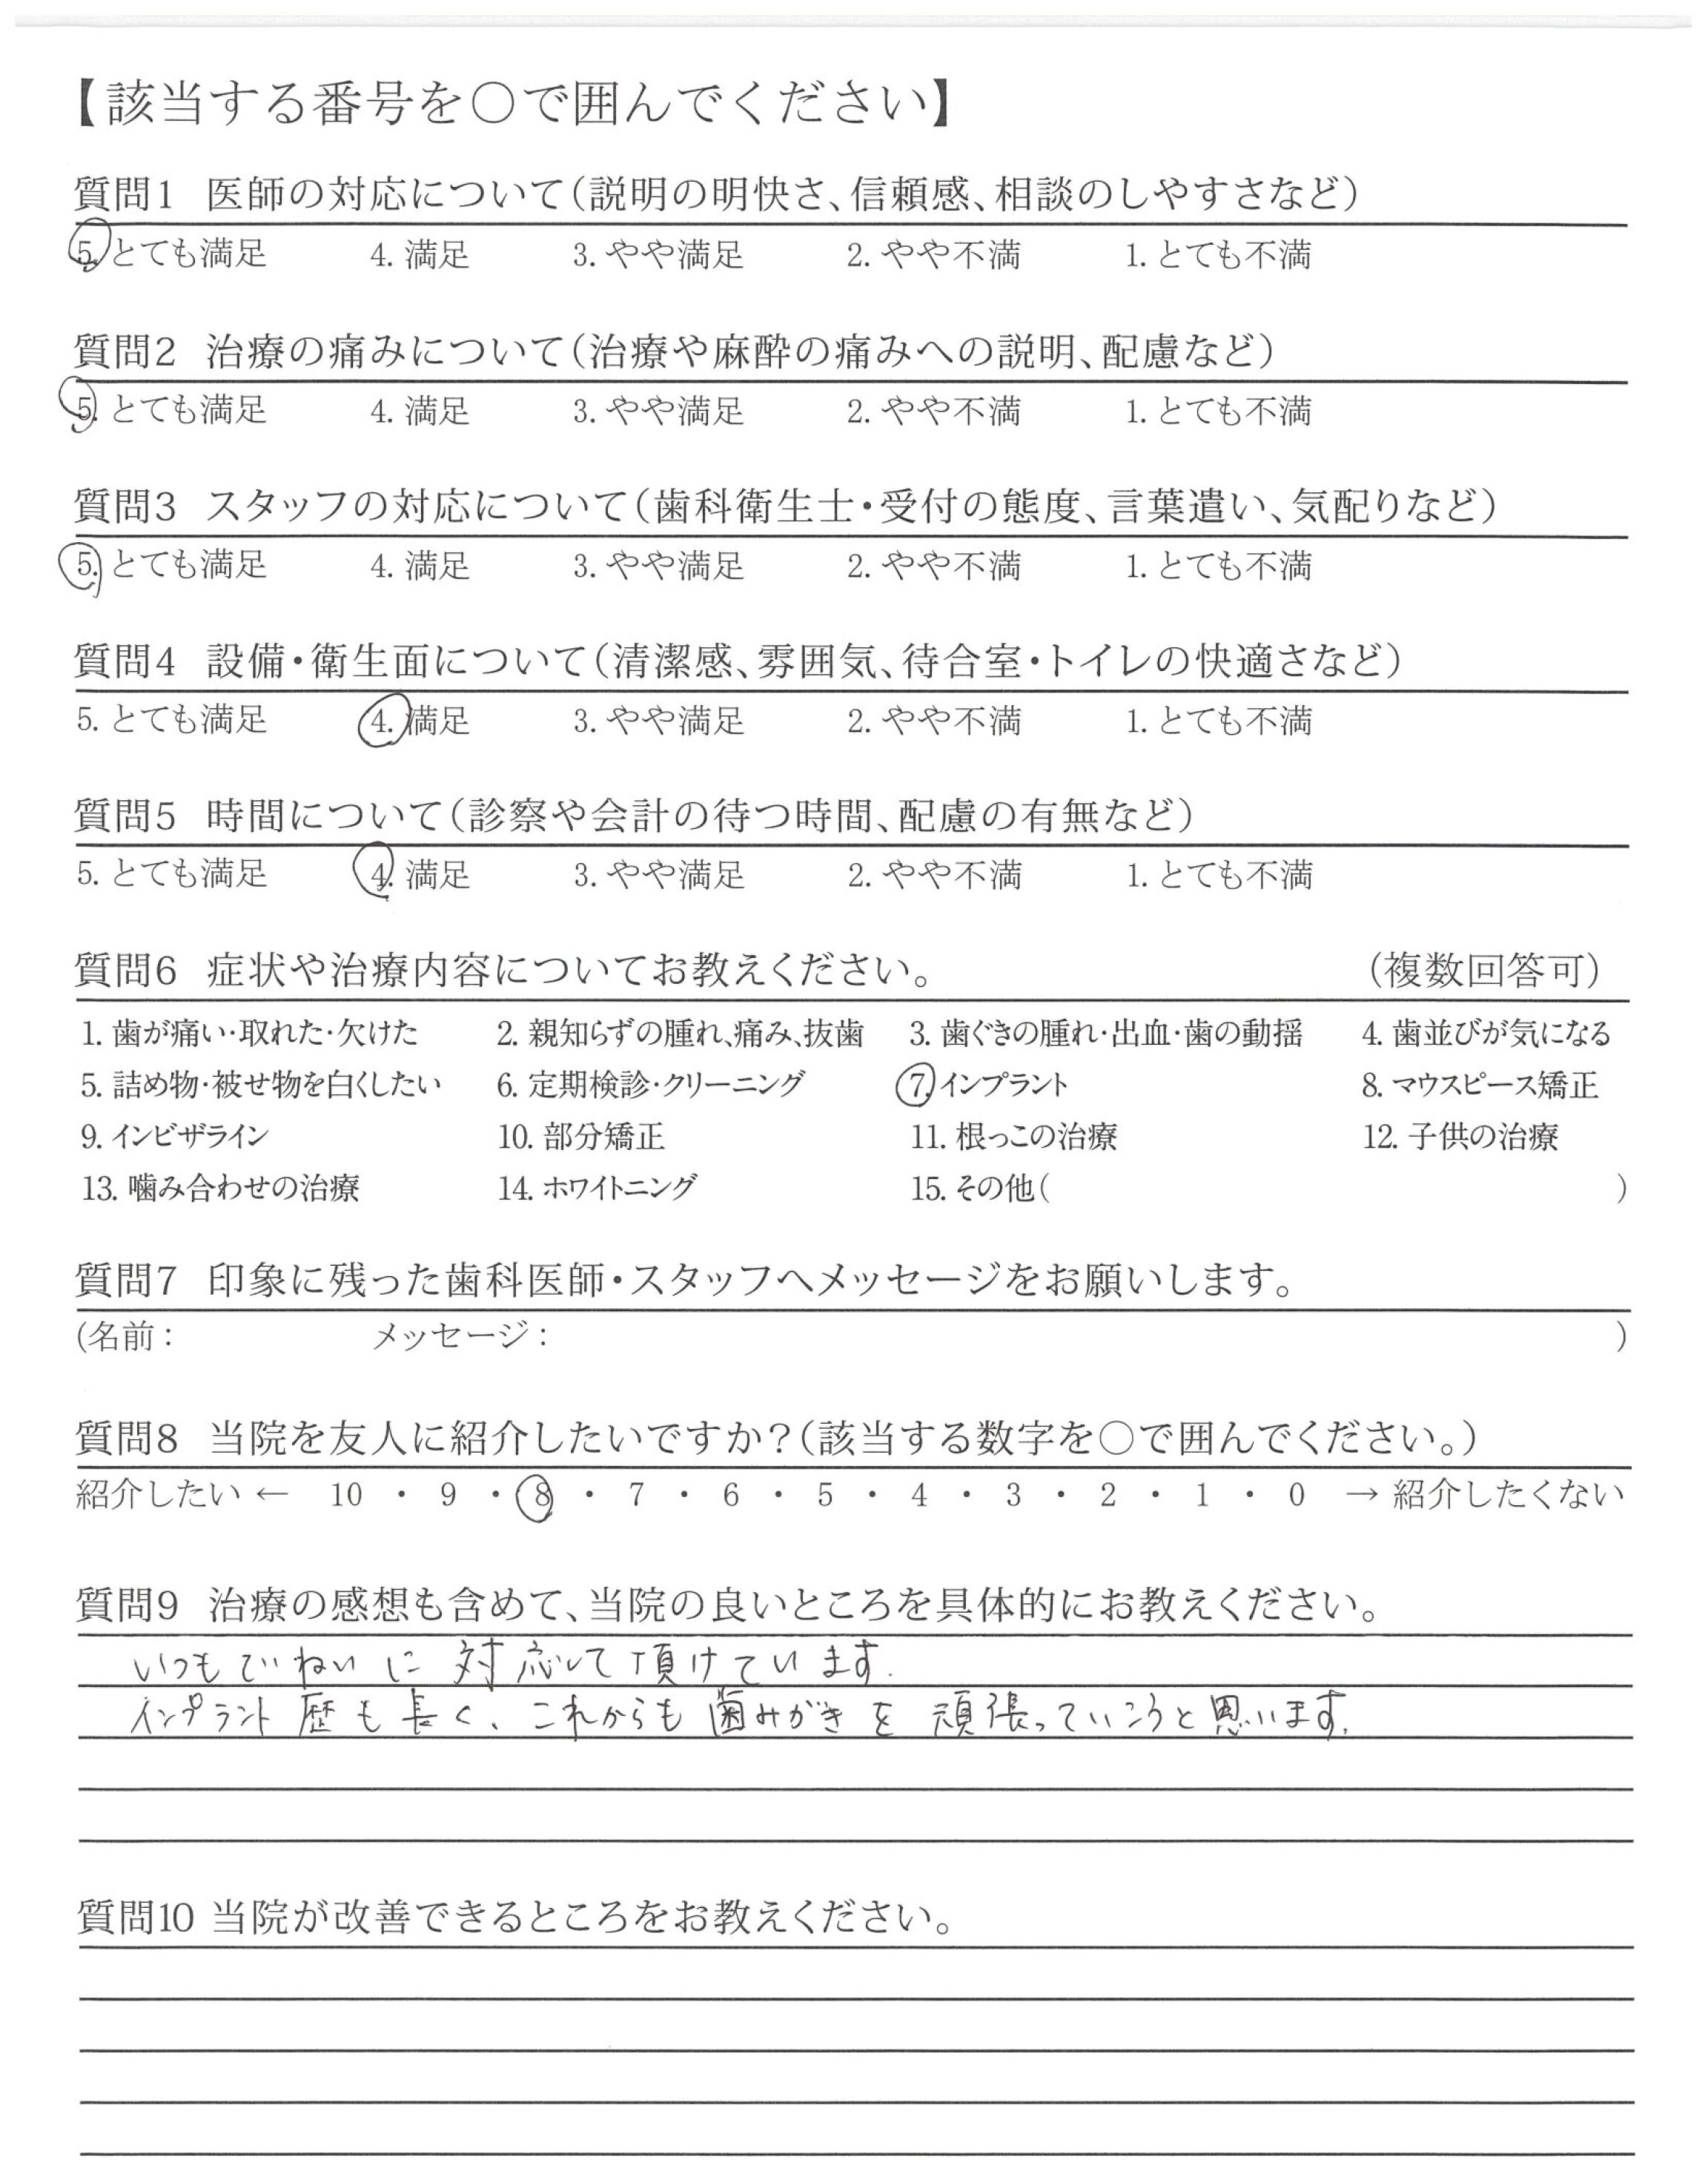 【該当する番号を○で囲んでください】
質問1 医師の対応について(説明の明快さ、信頼感、相談のしやすさなど)
5. とても満足 4. 満足 3. やや満足 2. やや不満 1. とても不満
質問2 治療の痛みについて(治療や麻酔の痛みへの説明、配慮など)
5. とても満足 4. 満足 3. やや満足 2. やや不満 1. とても不満
質問3 スタッフの対応について(歯科衛生士・受付の態度、言葉遣い、気配りなど)
5. とても満足 4. 満足 3. やや満足 2. やや不満 1. とても不満
質問4 設備・衛生面について(清潔感、雰囲気、待合室・トイレの快適さなど)
5. とても満足 4. 満足 3. やや満足 2. やや不満 1. とても不満
質問5 時間について(診察や会計の待つ時間、配慮の有無など)
5. とても満足 4. 満足 3. やや満足 2. やや不満 1. とても不満
質問6 症状や治療内容についてお教えください。 (複数回答可)
1. 歯が痛い・取れた・欠けた 2. 親知らずの腫れ、痛み、抜歯 3. 歯ぐきの腫れ・出血・歯の動揺 4. 歯並びが気になる
5. 詰め物・被せ物を白くしたい 6. 定期検診・クリーニング 7. インプラント 8. マウスピース矯正
9. インビザライン 10. 部分矯正 11. 根っこの治療 12. 子供の治療
13. 噛み合わせの治療 14. ホワイトニング 15. その他( )
質問7 印象に残った歯科医師・スタッフへメッセージをお願いします。
(名前: メッセージ: )
質問8 当院を友人に紹介したいですか?(該当する数字を○で囲んでください。)
紹介したい ← 10 ・ 9 ・ 8 ・ 7 ・ 6 ・ 5 ・ 4 ・ 3 ・ 2 ・ 1 ・ 0 → 紹介したくない
質問9 治療の感想も含めて、当院の良いところを具体的にお教えください。
いつもていねいに対応して頂けています.
インプラント歴も長く、これからも歯みがきを頑張っていこうと思います.
質問10 当院が改善できるところをお教えください。